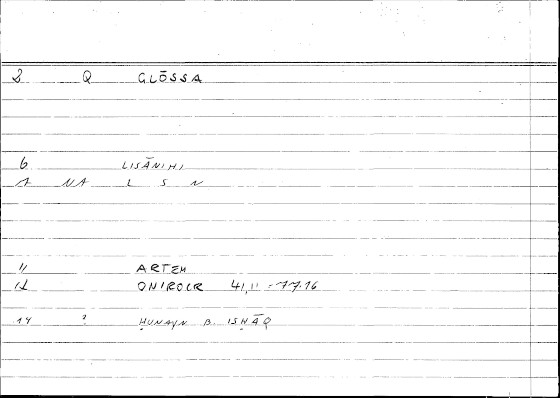 2 Q GLŌSSA
6 LISĀNIHI
1 NA L S N
11 ARTEM
12 ONIROCR 41,11 = 77.16
14 ? ḤUNAYN B. ISḤĀQ